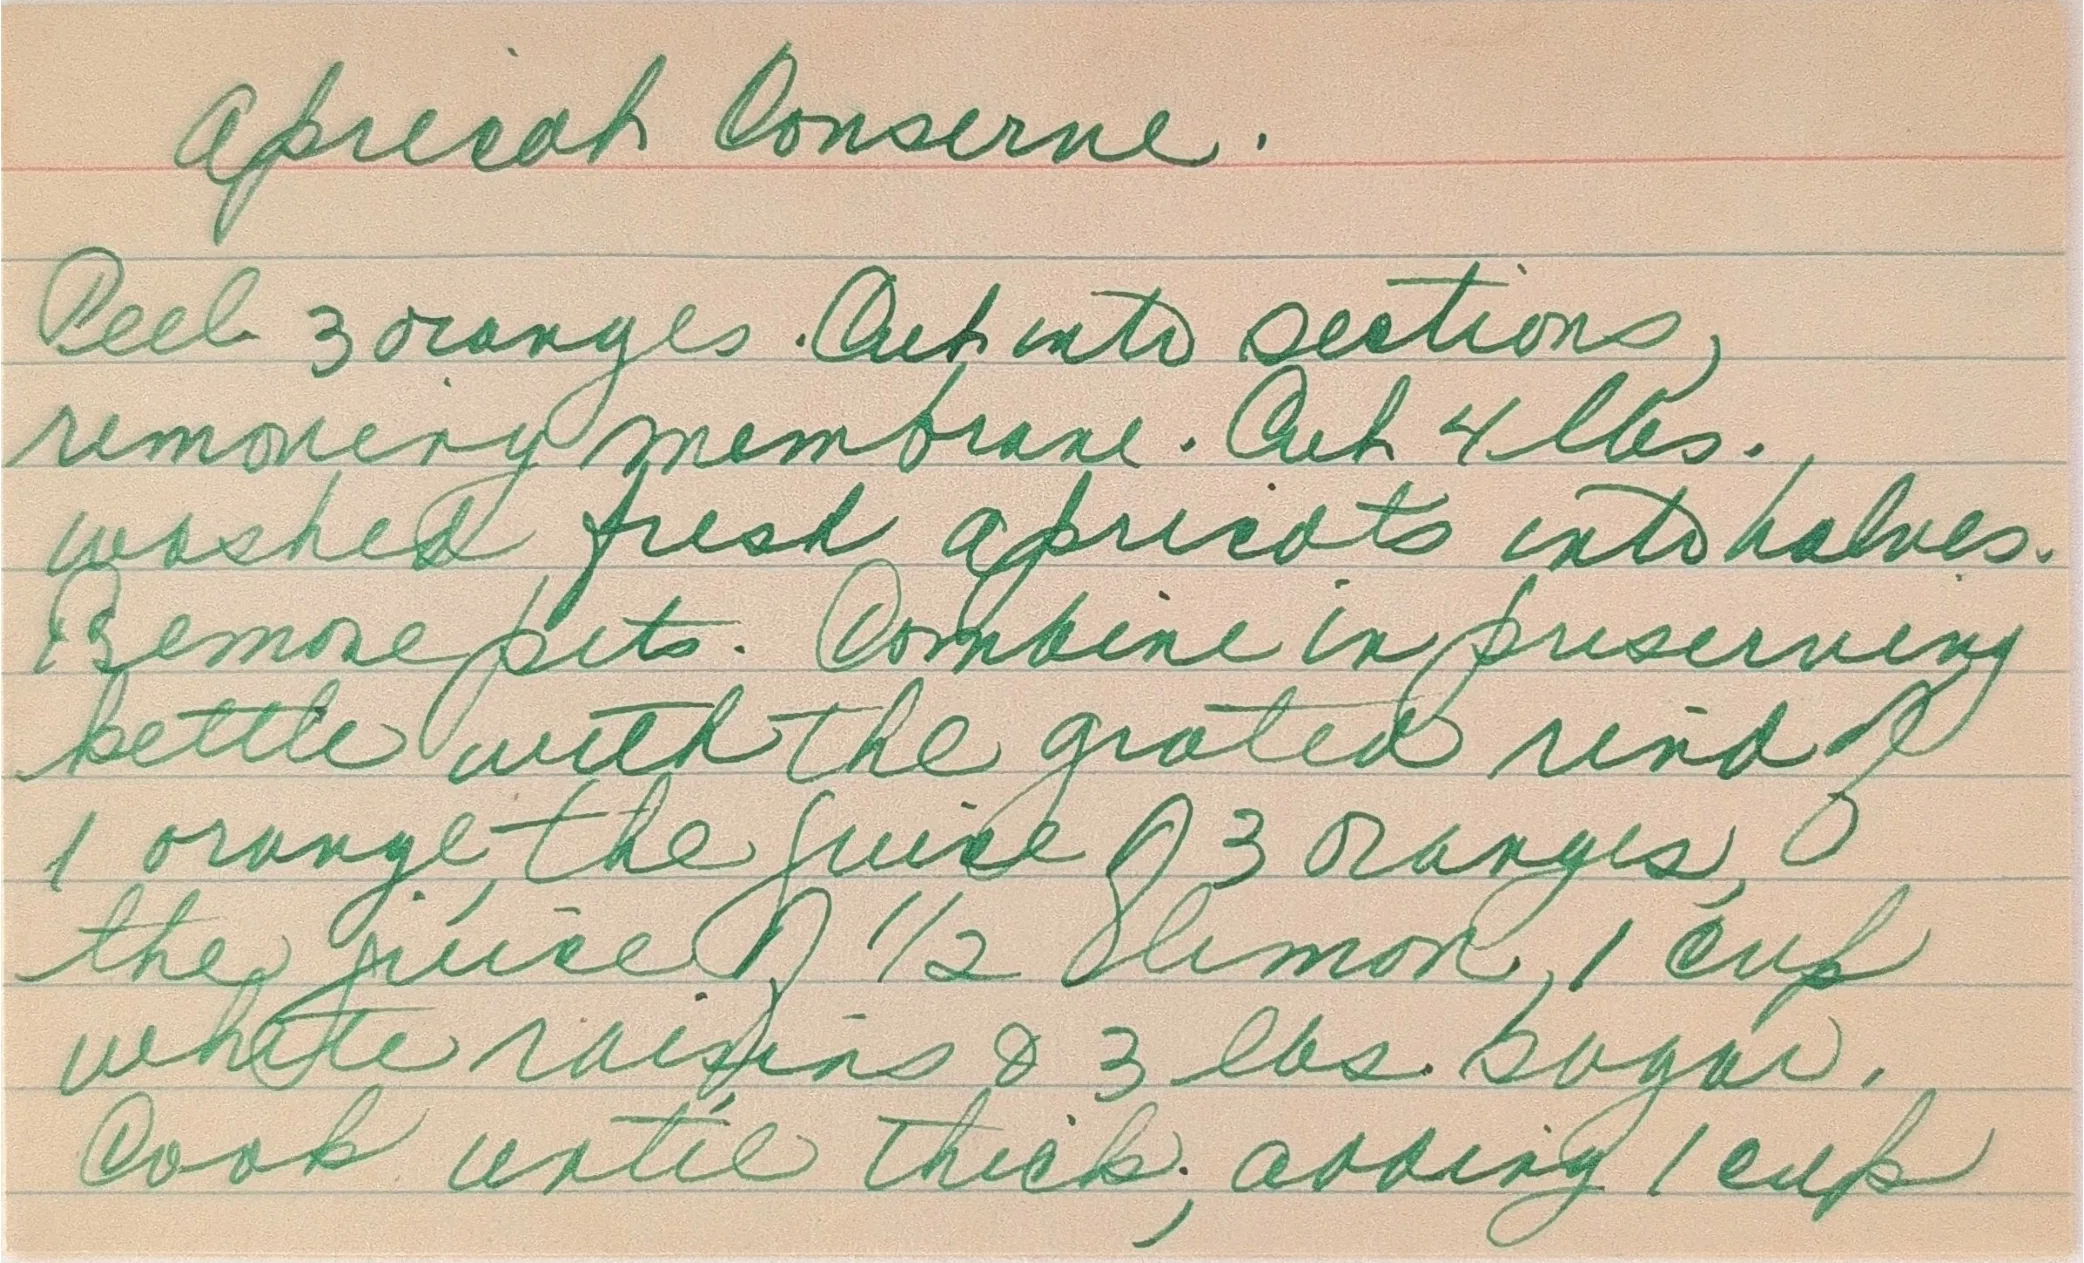 Apricot Conserve.
Peel 3 oranges. Cut into sections,
removing membrane. Cut 4 lbs.
washed fresh apricots into halves.
Remove pits. Combine in preserving
kettle with the grated rind of
1 orange, the juice of 3 oranges,
the juice of 1/2 lemon, 1 cup
white raisins & 3 lbs. sugar.
Cook until thick, adding 1 cup